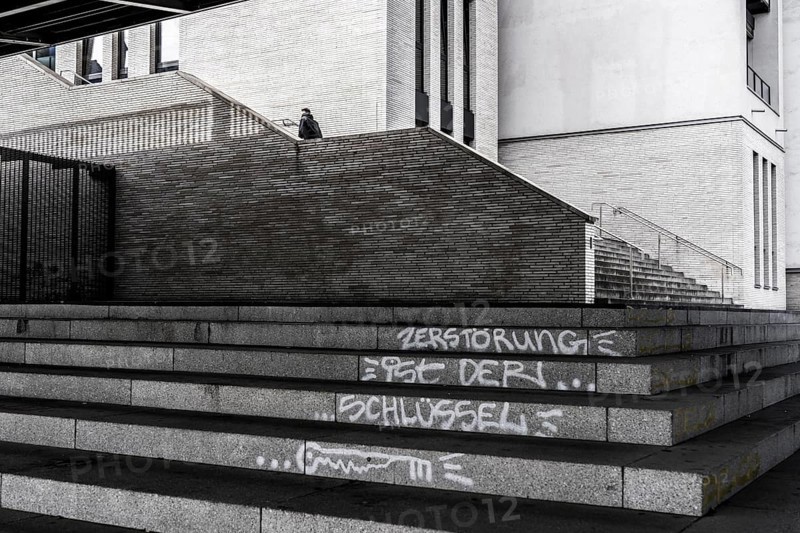 ZERSTÖRUNG
iST DER...
...SCHLÜSSEL
...
PHOTO12
PHOTO12
PHOTO12
PHOTO12
PHOTO12